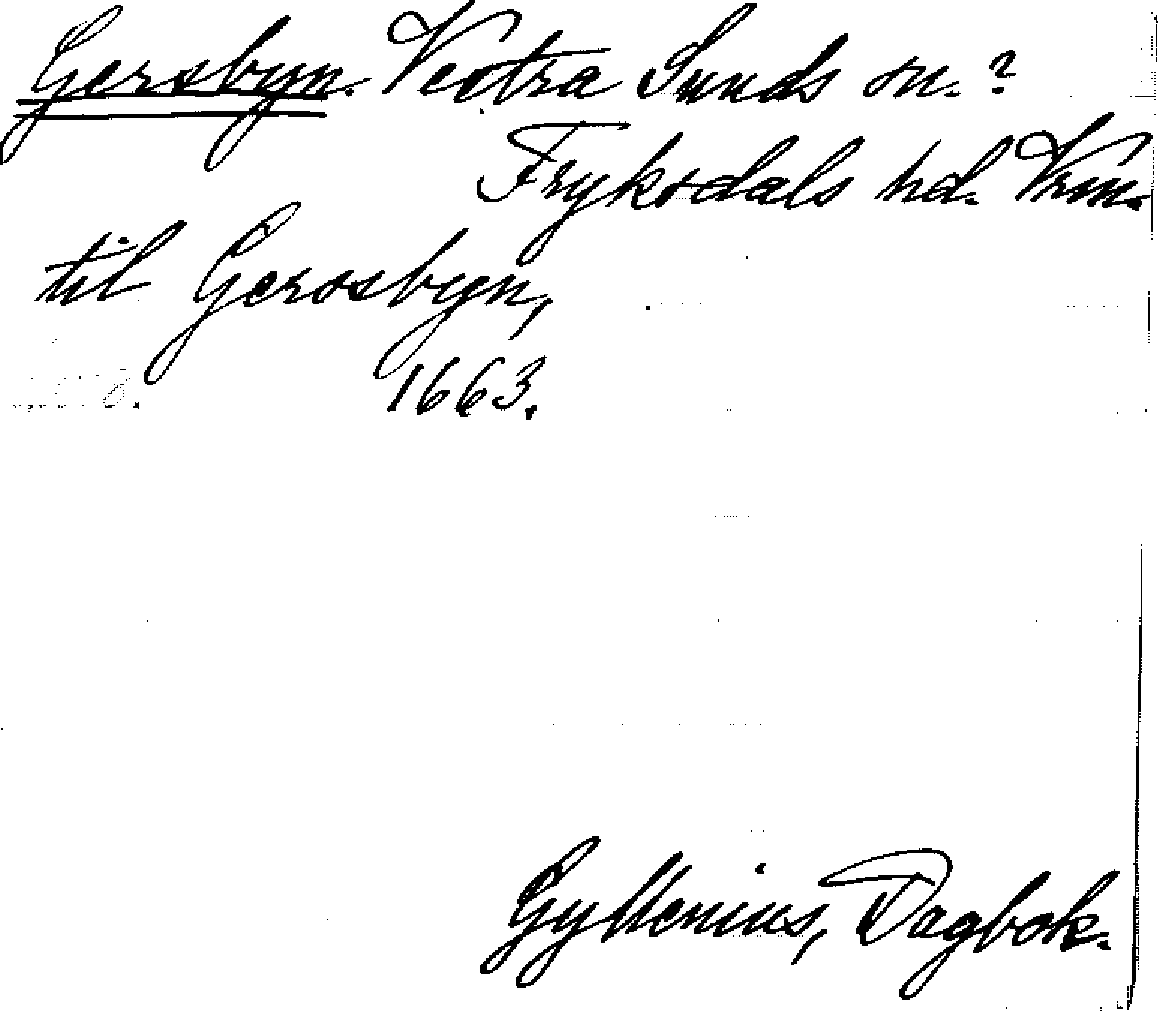 Gersbyn. Vestra Sunds sn.?
Fryksdals hd. Vrm.
til Gerssbyn,
1663.
Gyllenius, Dagbok.